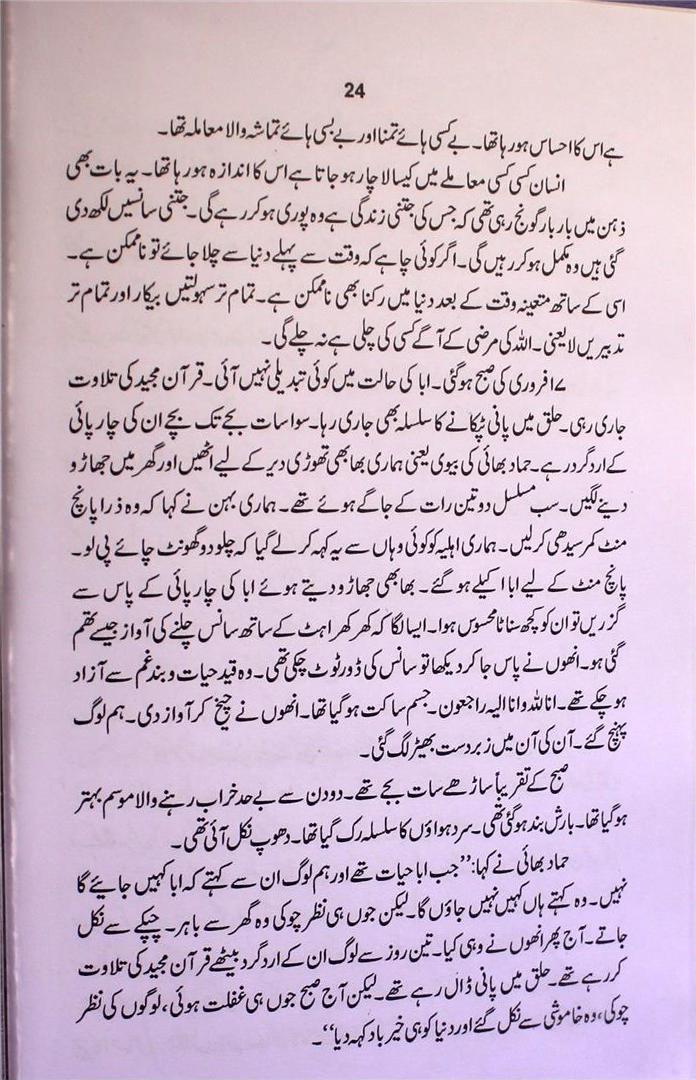 24
ہے اس کا احساس ہو رہا تھا۔ بے کسی ہائے تمنا اور بے بسی ہائے تماشہ والا معاملہ تھا۔
انسان کسی کسی معاملے میں کیسا لاچار ہو جاتا ہے اس کا اندازہ ہو رہا تھا۔ یہ بات بھی
ذہن میں بار بار گونج رہی تھی کہ جس کی جتنی زندگی ہے وہ پوری ہو کر رہے گی۔ جتنی سانسیں لکھ دی
گئی ہیں وہ مکمل ہو کر رہیں گی۔ اگر کوئی چاہے کہ وقت سے پہلے دنیا سے چلا جائے تو ناممکن ہے۔
اسی کے ساتھ متعینہ وقت کے بعد دنیا میں رکنا بھی ناممکن ہے۔ تمام تر سہولتیں بیکار اور تمام تر
تدبیریں لایعنی۔ اللہ کی مرضی کے آگے کسی کی چلی ہے نہ چلے گی۔
۷ا فروری کی صبح ہو گئی۔ ابا کی حالت میں کوئی تبدیلی نہیں آئی۔ قرآن مجید کی تلاوت
جاری رہی۔ حلق میں پانی ٹپکانے کا سلسلہ بھی جاری رہا۔ سوا سات بجے تک بچے ان کی چارپائی
کے ارد گرد رہے۔ حماد بھائی کی بیوی یعنی ہماری بھابھی تھوڑی دیر کے لیے اٹھیں اور گھر میں جھاڑو
دینے لگیں۔ سب مسلسل دو تین رات کے جاگے ہوئے تھے۔ ہماری بہن نے کہا کہ وہ ذرا پانچ
منٹ کمر سیدھی کر لیں۔ ہماری اہلیہ کو کوئی وہاں سے یہ کہہ کر لے گیا کہ چلو دو گھونٹ چائے پی لو۔
پانچ منٹ کے لیے ابا اکیلے ہو گئے۔ بھابھی جھاڑو دیتے ہوئے ابا کی چارپائی کے پاس سے
گزریں تو ان کو کچھ سناٹا محسوس ہوا۔ ایسا لگا کہ کھرکھراہٹ کے ساتھ سانس چلنے کی آواز جیسے تھم
گئی ہو۔ انھوں نے پاس جا کر دیکھا تو سانس کی ڈور ٹوٹ چکی تھی۔ وہ قید حیات و بند غم سے آزاد
ہو چکے تھے۔ انا للہ وانا الیہ راجعون۔ جسم ساکت ہو گیا تھا۔ انھوں نے چیخ کر آواز دی۔ ہم لوگ
پہنچ گئے۔ آن کی آن میں زبردست بھیڑ لگ گئی۔
صبح کے تقریباً ساڑھے سات بجے تھے۔ دو دن سے بے حد خراب رہنے والا موسم بہتر
ہو گیا تھا۔ بارش بند ہو گئی تھی۔ سرد ہواؤں کا سلسلہ رک گیا تھا۔ دھوپ نکل آئی تھی۔
حماد بھائی نے کہا: ’’جب ابا حیات تھے اور ہم لوگ ان سے کہتے کہ ابا کہیں جایئے گا
نہیں۔ وہ کہتے ہاں کہیں نہیں جاؤں گا۔ لیکن جوں ہی نظر چوکی وہ گھر سے باہر۔ چپکے سے نکل
جاتے۔ آج پھر انھوں نے وہی کیا۔ تین روز سے لوگ ان کے ارد گرد بیٹھے قرآن مجید کی تلاوت
کر رہے تھے۔ حلق میں پانی ڈال رہے تھے۔ لیکن آج صبح جوں ہی غفلت ہوئی، لوگوں کی نظر
چوکی، وہ خاموشی سے نکل گئے اور دنیا کو ہی خیرباد کہہ دیا‘‘۔